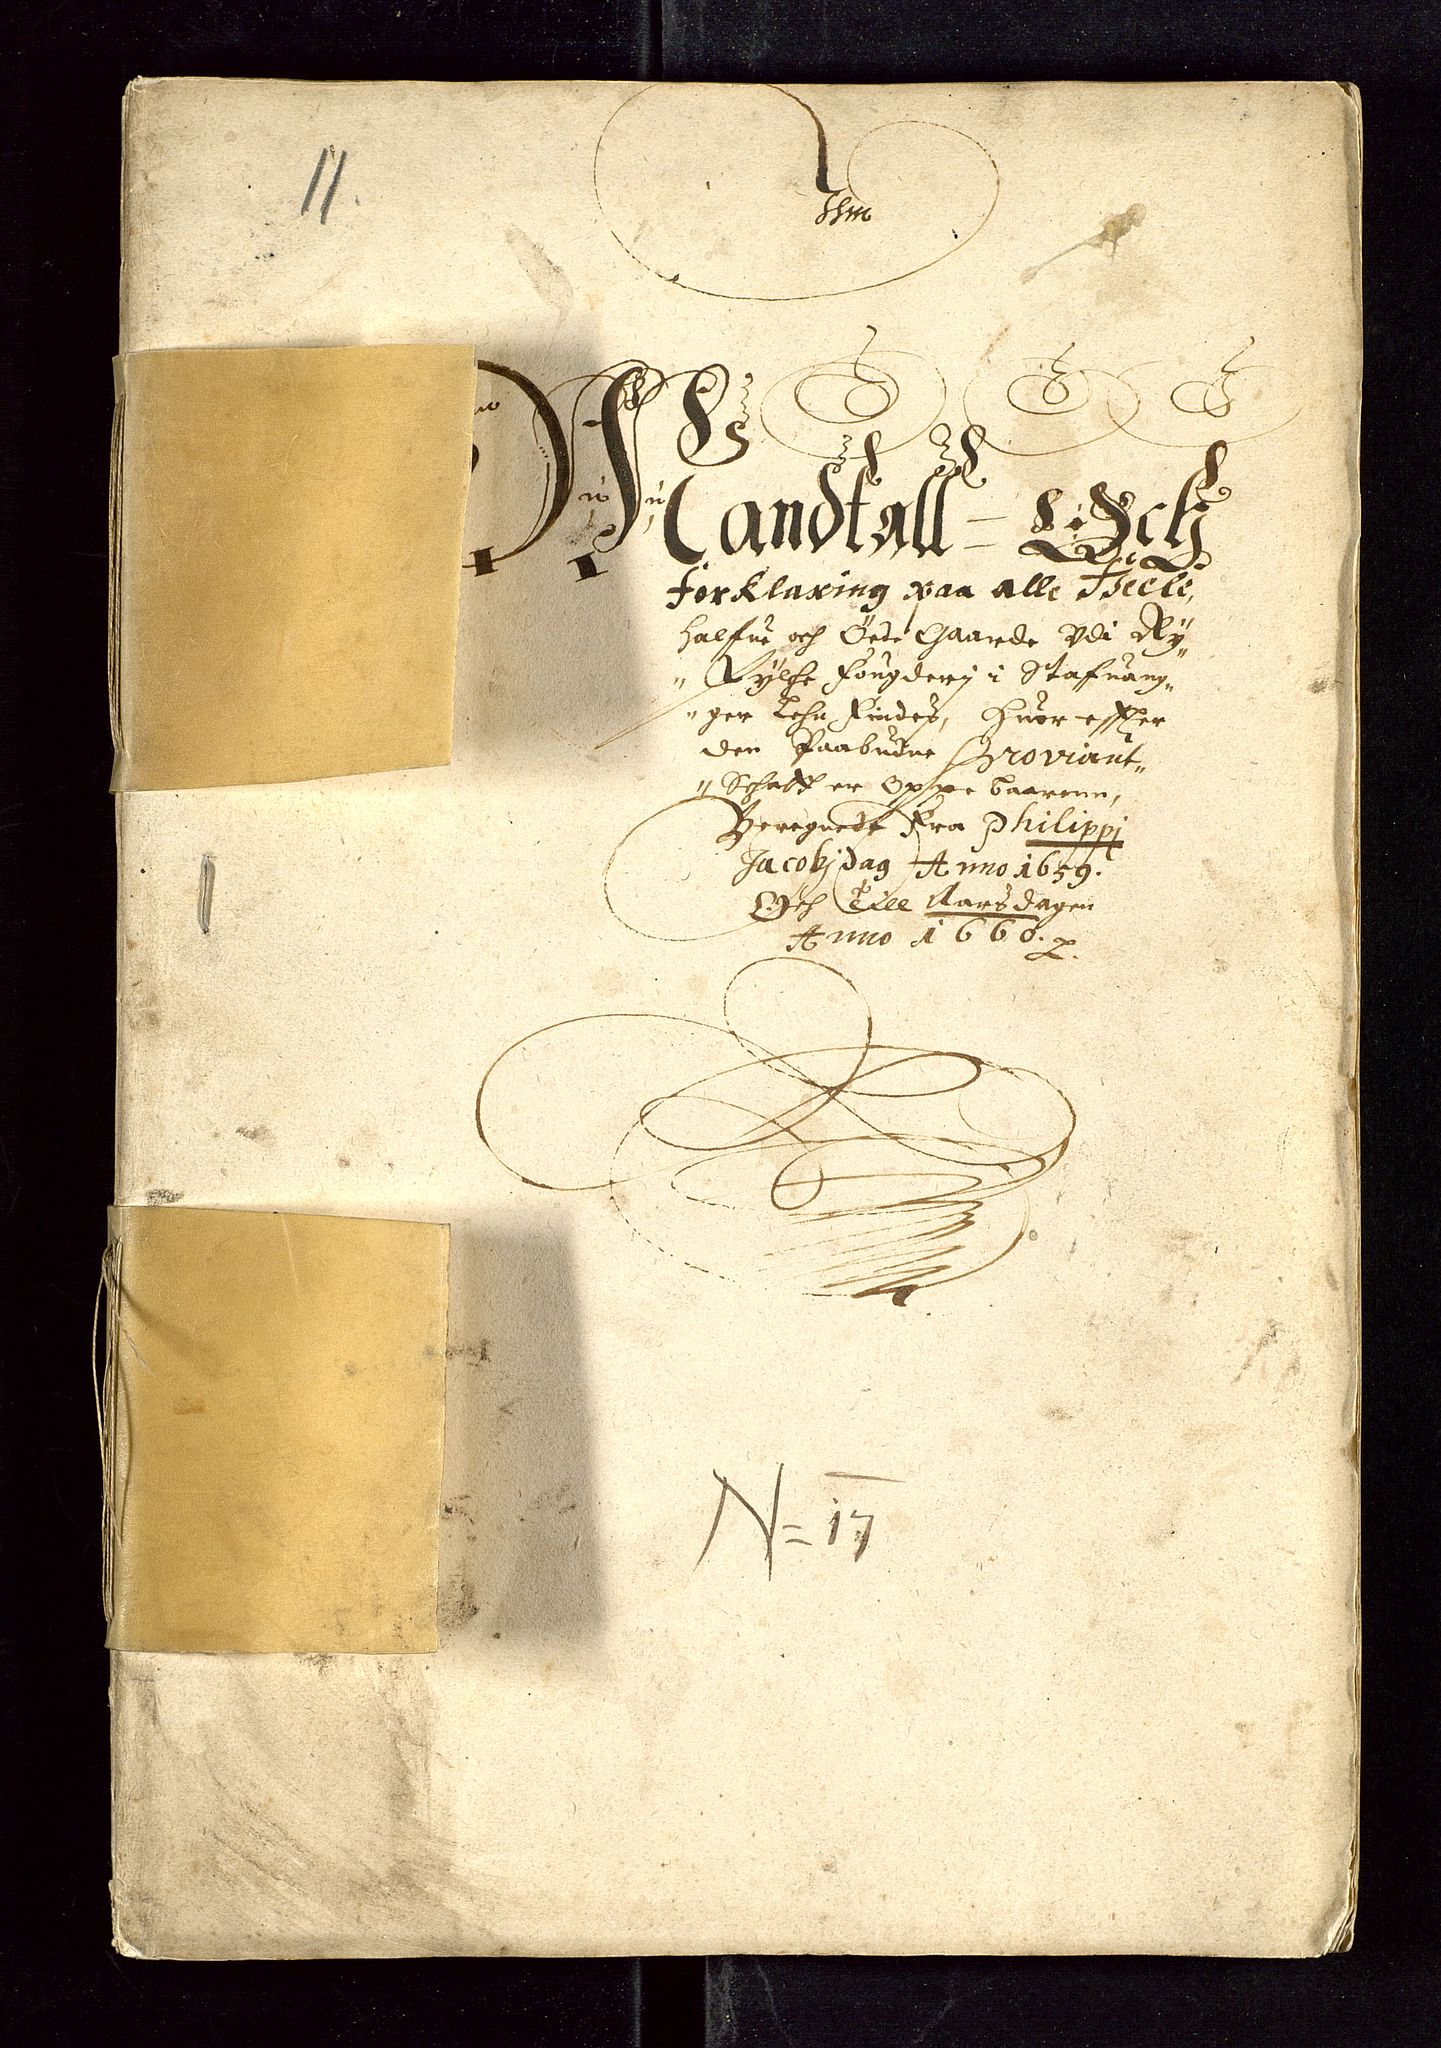 11.
Mandtall = Och
forklaring paa alle Heele,
halfue och Öede Gaarde Vdi Ry„
„ Fylche Fougderj i Stafuang„
„ger Lehn Findes, Huor effter
den Paabudne Proviant„
„Schatt er Oppe baarenn,
Beregnede Fra Philippi
Jacobj dag Anno 1659.
Och till Aarsdagen
Anno 1660.
N= 17